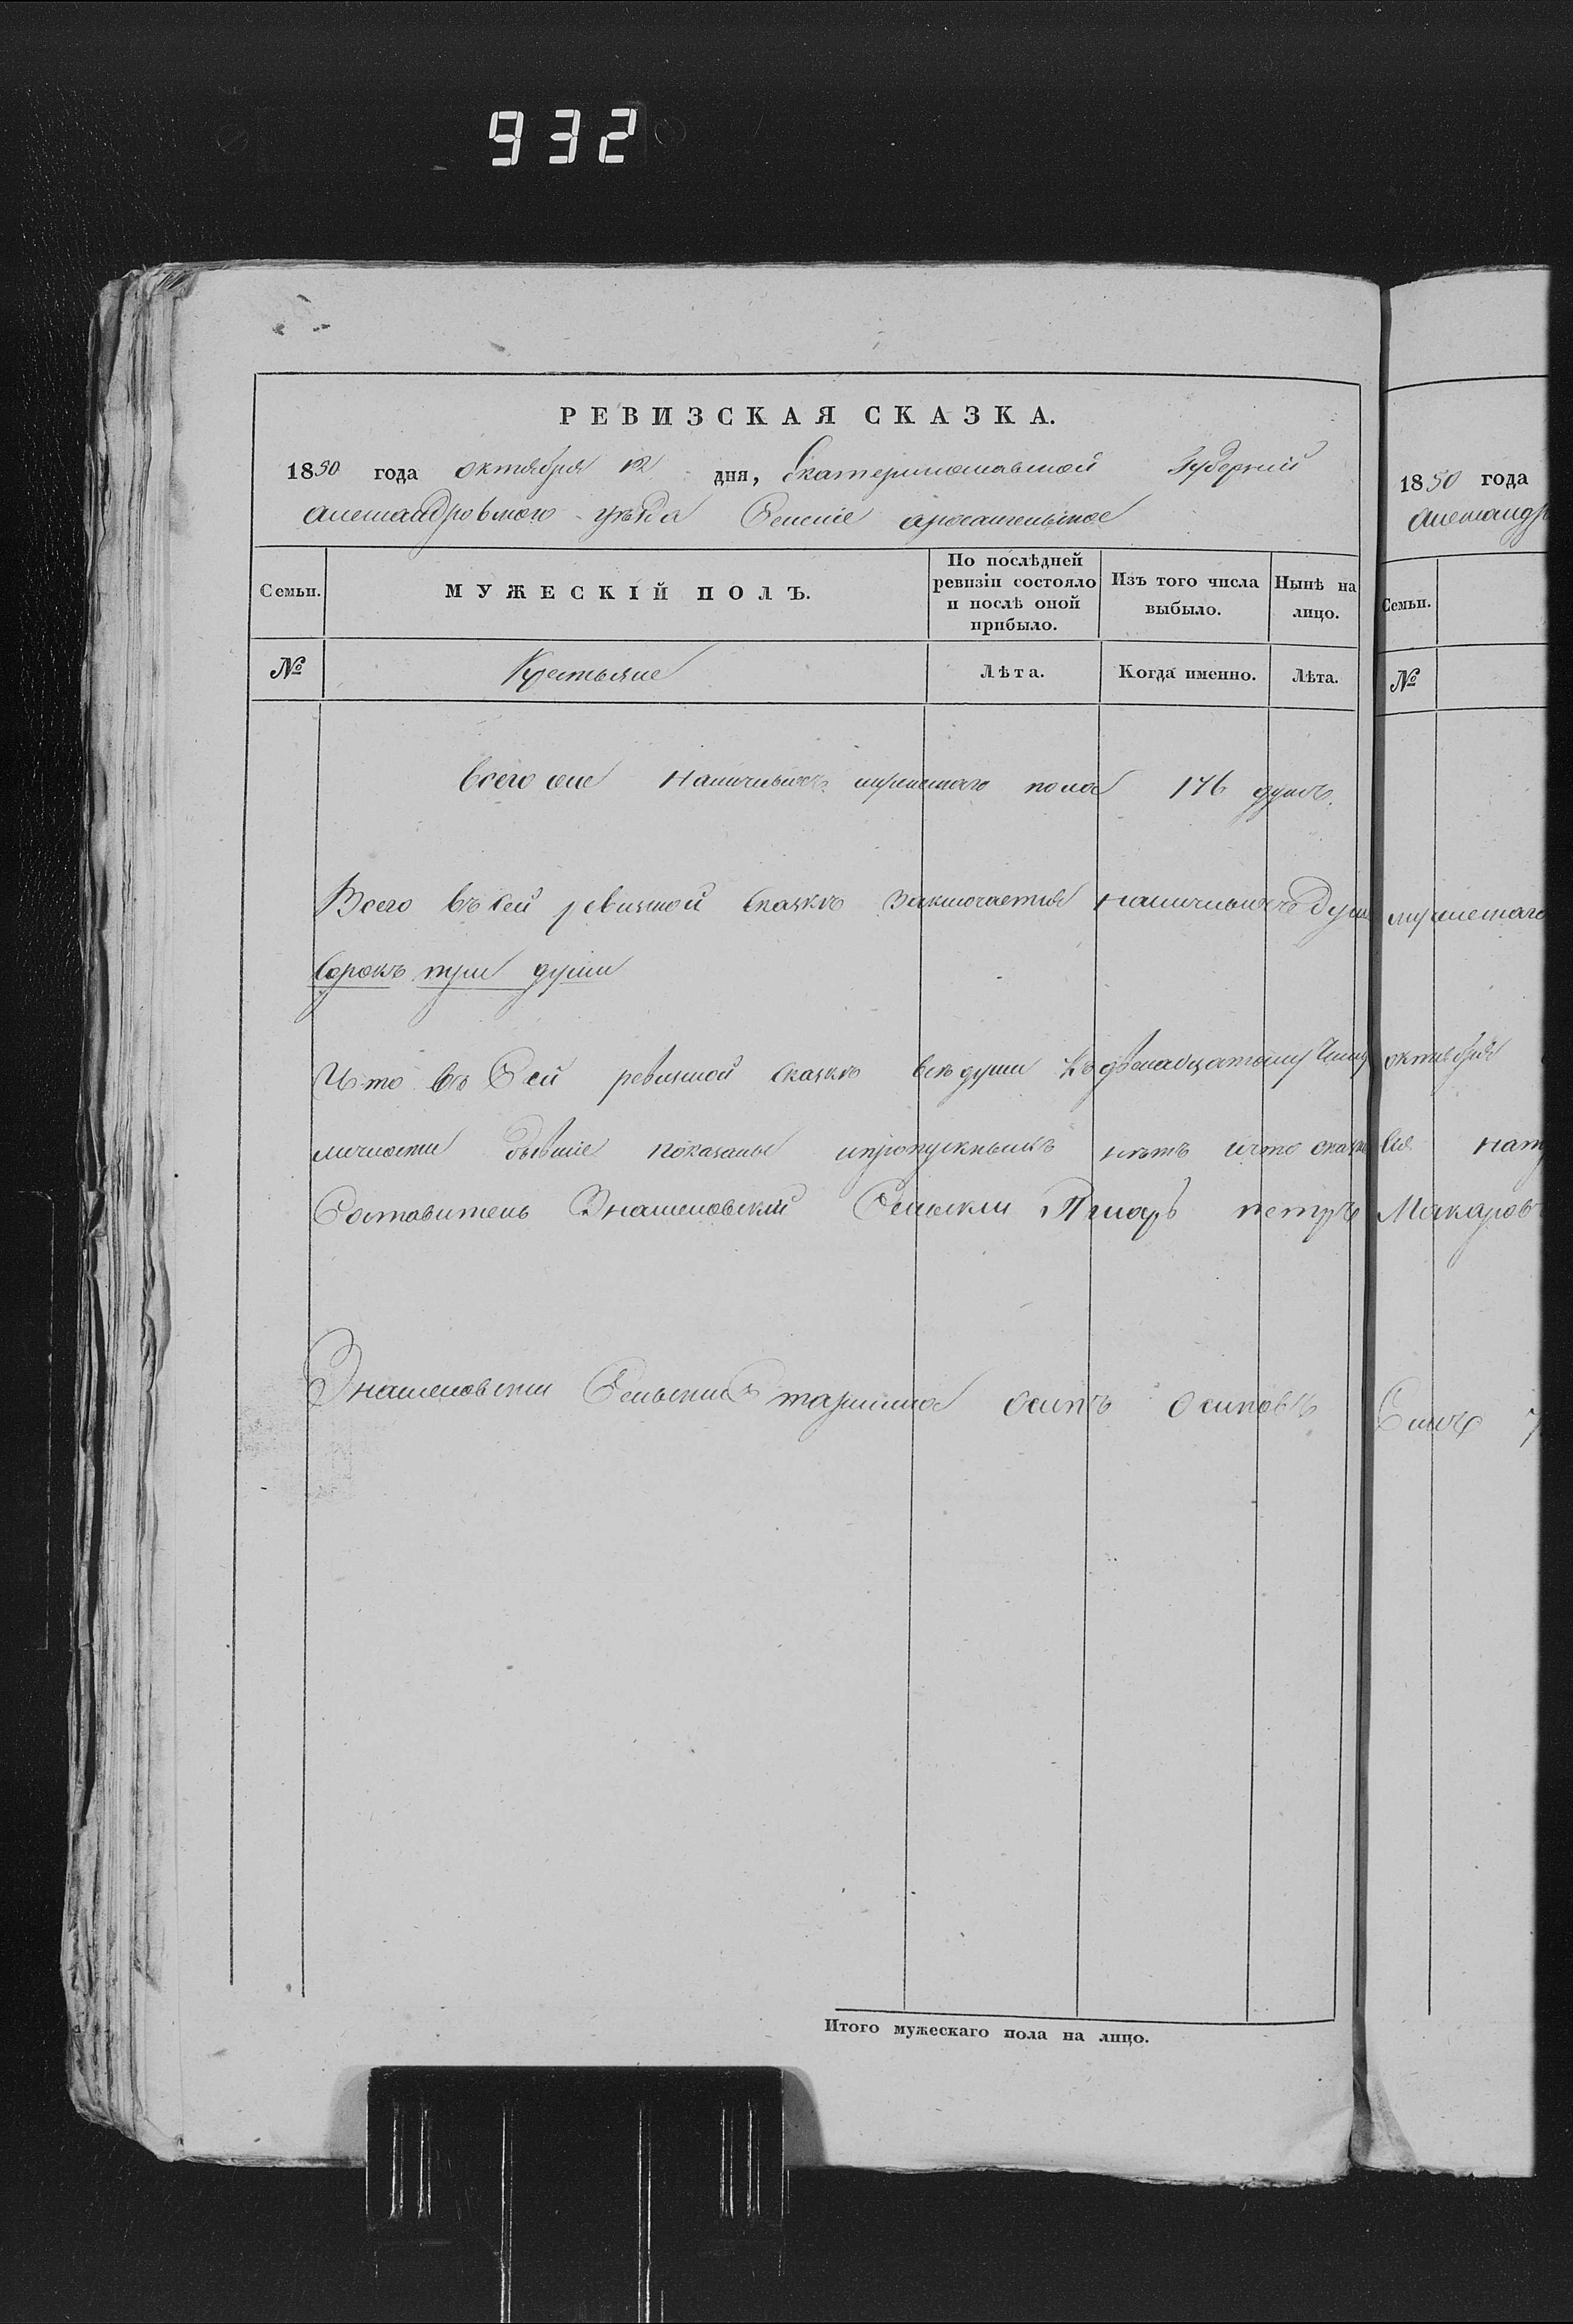 932
РЕВИЗСКАЯ СКАЗКА.
1850 года октября 12 дня, Екатеринославской Губерніи
Александровскаго уѣзда Селеніе
Семьи.
МУЖЕСКІЙ ПОЛЪ.
По послѣдней ревизіи состояло и послѣ оной прибыло.
Изъ того числа выбыло.
Нынѣ на лицо.
№
Крестьяне
Лѣта.
Когда именно.
Лѣта.
всего наличныхъ мужескаго пола 176 душъ.
Всего въ сей ревизкой сказкѣ заключается наличныхъ душ
сорокъ три души
Что въ Сей ревизкой сказкѣ всѣ души къ двенадцатому числу
личности бывшіе показаны ипропускныхъ нѣтъ ичто сказка
Составитель Знаменовскій Сельскій Писарь петръ
Знаменовскій Сельский Старшина осипъ осиповъ
Итого мужескаго пола на лицо.
1850 года
Александр
Семьи.
№
мужескаго
октября
сія
Макаровъ